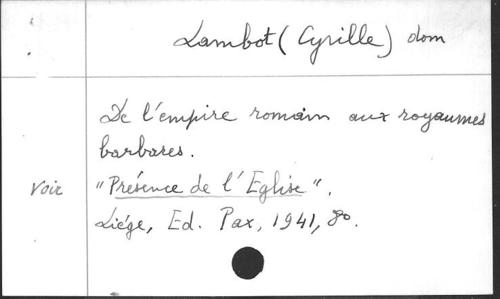 Lambot (Cyrille) dom
De l'empire romain aux royaumes
barbares.
voir "Présence de l'Eglise".
Liége, Ed. Pax, 1941, 8o.